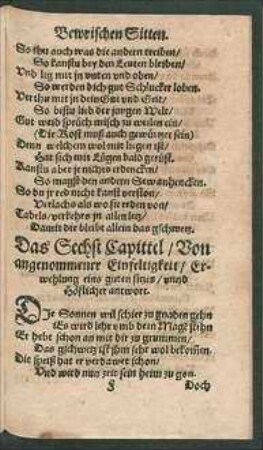 Bewrischen Sitten.
So thu auch was die andern treiben/
So kanstu bey den Leuten bleiben/
Vnd leug mit jn vnten vnd oben/
So werden dich gut Schlucker loben.
Verthu mit jn dein Gut vnd Gelt/
So bistu lieb der jungen Welt/
Gut weidsprüch misch zu weilen ein/
(Die Kost muß auch gewürtzet sein)
Denn welchem wol mit liegen ist/
Hat sich mit Lügen bald gerüst.
Kanstu aber je nichts erdencken/
So magst den andern
So du je red nicht kanst verston/
Verlachs als wo sie erden von/
Tadels/ verkehrs in allen letz/
Damit die bleibt allein das gschwetz.
Das Sechst Capittel/ Von
angenommener Einfeltigkeit/ Er-
wehlung eins guten sitzes/ vnnd
Höflicher antwort.
DJe Sonnen wil schier zu gnaden gehn
Es wird sehr vmb dein Magt stehn
Er hebt schon an mit dir zu grummen/
Das gschwetz ist jhm sehr wol bekommen.
Die speiß hat er verdawet schon/
Vnd wird nun zeit sein heim zu gon.
§ Doch